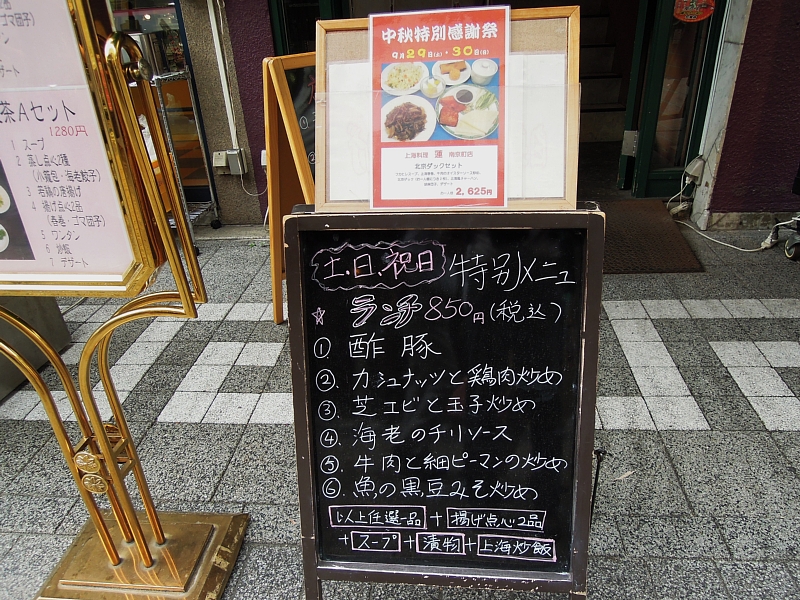 中秋特別感謝祭
9月29日(土)・30日(日)
上海料理 蓮 南京町店
北京ダックセット
2,625円
土、日、祝日 特別メニュ
☆ ランチ850円(税込)
① 酢豚
② カシュナッツと鶏肉炒め
③ 芝エビと玉子炒め
④ 海老のチリソース
⑤ 牛肉と細ピーマンの炒め
⑥ 魚の黒豆みそ炒め
以上任選一品 + 揚げ点心2品
+ スープ + 漬物 + 上海炒飯
茶Aセット
1280円
1 スープ
2 蒸し点心2種
(小籠包・海老餃子)
3 若鶏の唐揚げ
4 揚げ点心2品
(春巻・ゴマ団子)
5 ワンタン
6 炒飯
7 デザート